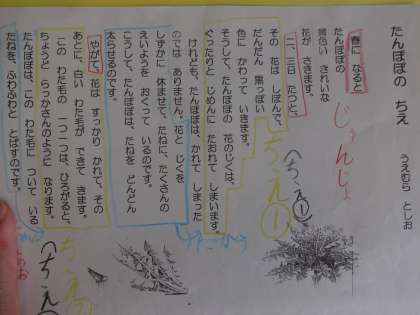 たんぽぽの ちえ
うえむら としお
春に なると
たんぽぽの
黄色い きれいな
花が さきます。
二、三日 たつと、
その 花は しぼんで、
だんだん 黒っぽい
色に かわって いきます。
そうして、たんぽぽの 花のじくは、
ぐったりと じめんに たおれて しまいます。
けれども、たんぽぽは、かれて しまった
のでは ありません。花と じくを
しずかに 休ませて、たねに、たくさんの
えいようを おくって いるのです。
こうして、たんぽぽは、たねを どんどん
太らせるのです。
やがて、花は すっかり かれて、その
あとに、白い わた毛が できて きます。
この わた毛の 一つ一つは、ひろがると、
ちょうど らっかさんのように なります。
たんぽぽは、この わた毛に ついて いる
たねを、ふわふわと とばすのです。
じゅんじょ
(ちえ①)
ちえ①
(ちえ
ちえ